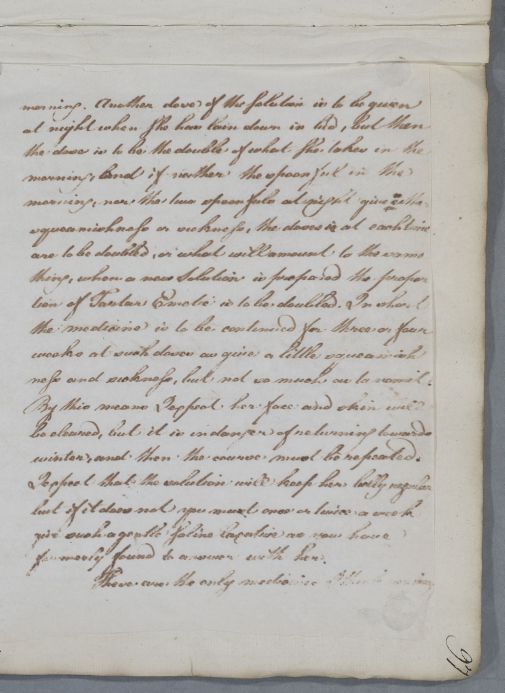 morning. Another dose of the Solution is to be given
at night when She has lain down in bed, but then
the dose is to be the double of what She takes in the
morning, and if neither the spoonful in the
morning, nor the two spoonfuls at night give the
squeamishness or sickness, the doses at each time
are to be doubled, or what will amount to the same
thing, when a new Solution is prepared the propor
tion of Tartar Emetic is to be doubled. In short
the medicine is to be continued for three or four
weeks at such doses as give a little squeamish
ness and sickness, but not so much as to vomit.
By this means I expect her face and skin will
be cleared, but it is in danger of returning towards
winter, and then the course must be repeated.
I expect that the solution will keep her belly regular
but if it does not you must once or twice a week
give such a gentle Saline Laxative as you have
formerly found to answer with her.
These are the only medicines I think
46